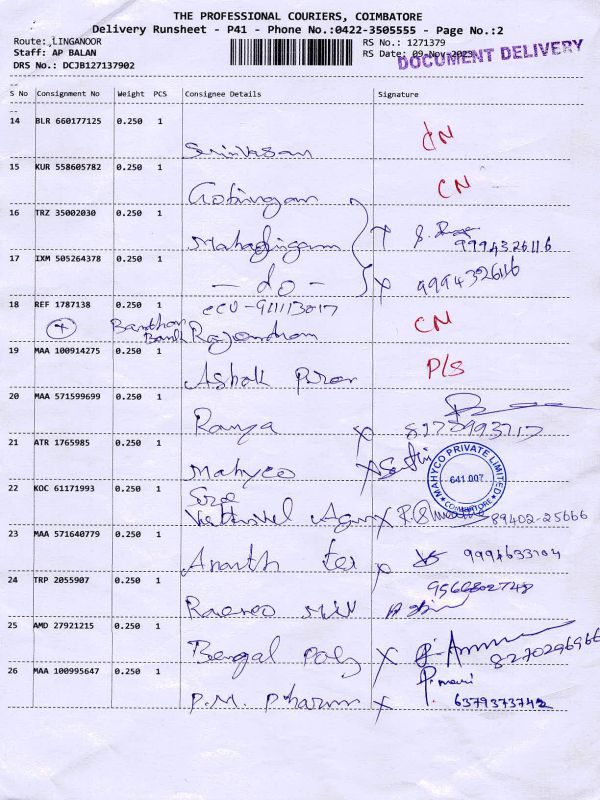 THE PROFESSIONAL COURIERS, COIMBATORE
Delivery Runsheet - P41 - Phone No.:0422-3505555 - Page No.:2
Route: LINGANOOR RS No.: 1271379
Staff: AP BALAN RS Date: 09-Nov-2023
DRS No.: DCJB127137902 DOCUMENT DELIVERY
S No Consignment No Weight PCS Consignee Details Signature
14 BLR 660177125 0.250 1
Srinivasan CN
15 KUR 558605782 0.250 1
CN
16 TRZ 35002030 0.250 1
Mahalingam 9994326116
17 IXM 505264378 0.250 1
- do - X 9994326116
18 REF 1787138 0.250 1
CN
19 MAA 100914275 0.250 1
Ashok P/S
20 MAA 571599699 0.250 1
Ranga X
21 ATR 1765985 0.250 1
Mahyco X
MAHYCO PRIVATE LIMITED
641 007.
COIMBATORE
22 KOC 61171993 0.250 1
Sree
X 89402-25666
23 MAA 571640779 0.250 1
Ananth Tex X 9994633104
24 TRP 2055907 0.250 1
25 AMD 27921215 0.250 1
Bengal Poly X 8270296966
26 MAA 100995647 0.250 1
P.M. Pharma X 6379373742